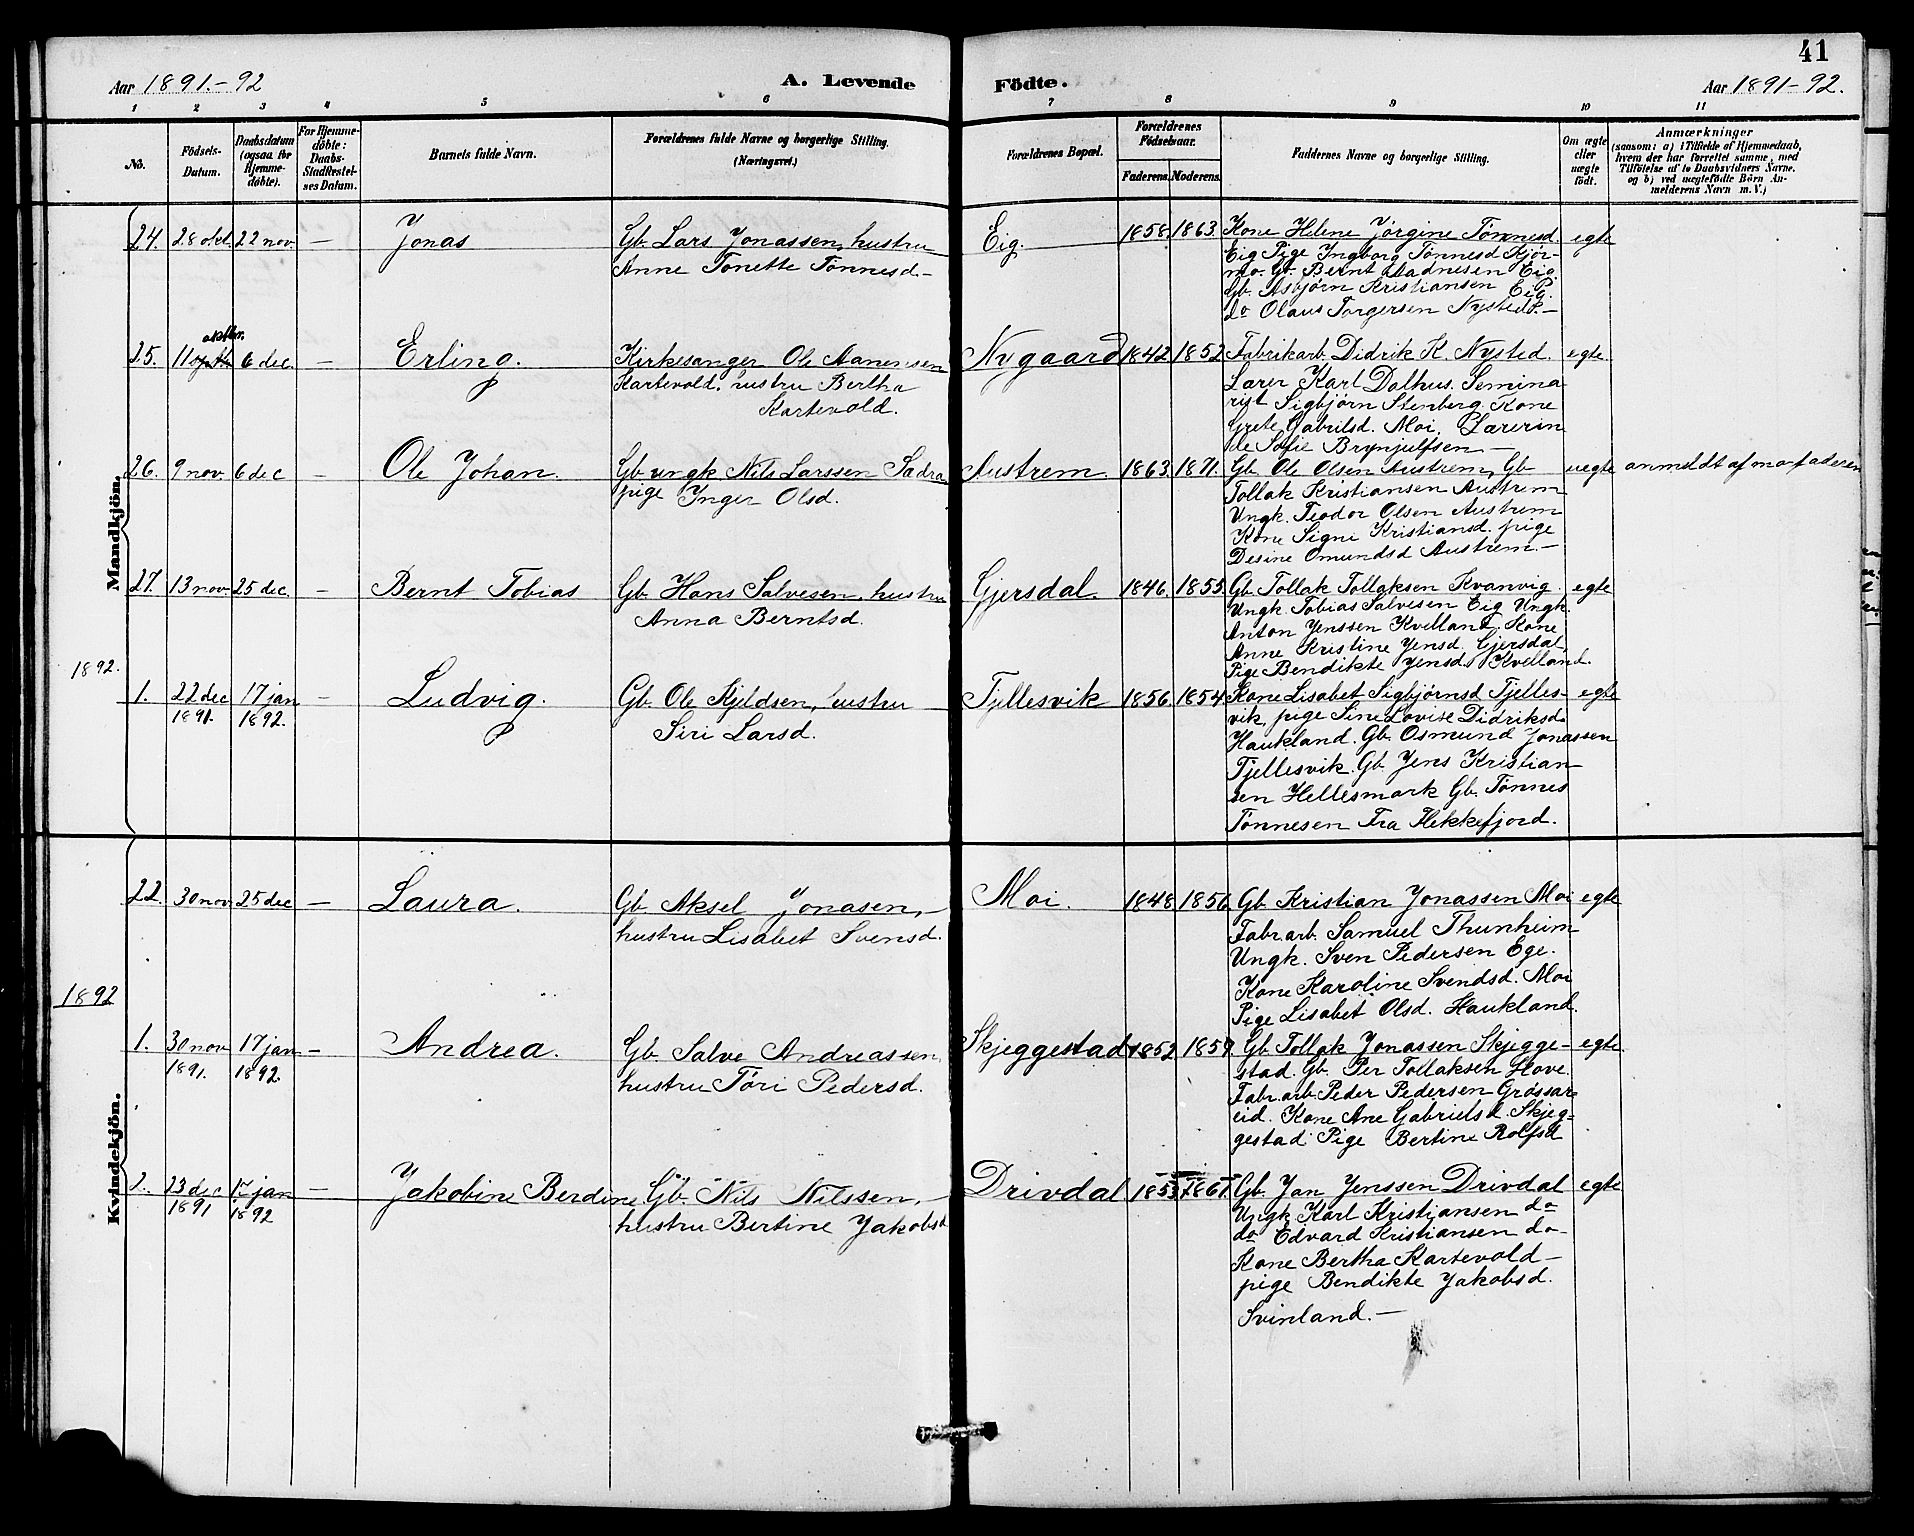 41
Aar 1891.-92 A. Levende Födte. Aar 1891-92.
1 2 3 4 5 6 7 8 9 10 11
No. Födsels-Datum. Daabsdatum (ogsaa for Hjemme-döbte). For Hjemme-döbte: Daabs-Stadfestel-ses Datum. Barnets fulde Navn. Forældrenes fulde Navne og borgerlige Stilling. (Næringsvei.) Forældrenes Bopæl. Forældrenes Födselsaar. Faderens. Moderens. Faddernes Navne og borgerlige Stilling. Om ægte eller uægte födt. Anmærkninger (saasom: a) i Tilfælde af Hjemmedaab, hvem der har forrettet samme, med Tilföielse af to Daabsvidners Navne, og b) ved uægtefödte Börn An-melderens Navn m. V.)
Mandkjön.
24. 28 okt 22 nov. — Jonas Gb. Lars Jonassen, hustru Eig. 1858. 1863. Kone Helene Jørgine Tønnesd. egte
Anne Tonette Tønnesd.- Eig Pige Ingborg Tønnesd Kjør-
mo. Gb. Bernt Aadnesen Eig.
Gb. Asbjørn Kristiansen Eig.
do Olaus Torgersen Nysted.-
25. 11 oktbr. 6 dec. — Erling. Kirkesanger Ole Aanensen Nygaard 1842 1852 Fabrikarb. Didrik K. Nysted. egte.
Kartevold. hustru Bertha Lærer Karl Dalhus. Semina
Kartevold. rist Sigbjørn Stenberg. Kone
Grete Gabrilsd. Moi. Lærerin
de Sofie Brynjulfsen —
26. 9 nov. 6 dec — Ole Johan. Gb ungk Nils Larssen Sadra Austrem 1863. 1871. Gb. Ole Olsen Austrem, Gb uegte anmeldt af morfaderen
pige Inger Olsd. Tollak Kristiansen Austrem
Ungk. Teodor Olsen Austrem
Kone Signi Kristiansd. pige
Desine Omundsd Austrem.—
27. 13 nov 25 dec. — Bernt Tobias Gb. Hans Salvesen, hustru Gjersdal. 1846. 1855. Gb. Tollak Tollaksen Kvanvig egte
Anna Berntsd. Ungk. Tobias Salvesen Eig Ungk.
Anton Jenssen Kvelland. Kone
Anne Kristine Jensd. Gjersdal
Pige Bendikte Jensd. Kvelland.
1892.
1. 22 dec 17 jan — Ludvig. Gb. Ole Kjeldsen, hustru Tjellesvik 1856. 1854. Kone Lisabet Sigbjørnsd Tjelles- egte
1891. 1892. Siri Larsd. vik, pige Sine Lovise Didriksd.
Haukland. Gb. Osmund Jonassen
Tjellesvik. Gb. Jens Kristian-
sen Hellesmark Gb. Tønnes
Tønnesen Fra Flekkefjord.
Kvindekjön.
22. 30 nov. 25 dec — Laura. Gb. Aksel Jonasen, — Moi. 1848. 1856. Gb. Kristian Jonassen Moi egte
hustru Lisabet Svensd. Fabr.arb. Samuel Thunheim
Ungk. Sven Pedersen Ege.
Kone Karoline Svendsd. Moi
Pige Lisabet Olsd. Haukland.
1892
1. 30 nov 17 jan — Andrea. Gb. Salve Andreassen, Skjeggestad 1852 1859 Gb. Tollak Jonassen Skjegge- egte.
1891. 1892. hustru Tóri Pedersd. stad. Gb. Per Tollaksen Hove.
Fabr.arb. Peder Pedersen Grøssar-
eid. Kone Ane Gabrielsd. Skjeg-
gestad Pige Bertine Rolfsd
2. 23 dec 17 jan — Jakobine Berdine Gb. Nils Nilssen, — Drivdal 1853. 1861. Gb. Jan Jenssen Drivdal egte
1891 1892 hustru Bertine Jakobsd Ungk Karl Kristiansen do
do Edvard Kristiansen do-
Kone Bertha Kartevold —
pige Bendikte Jakobsd.
Svinland.—